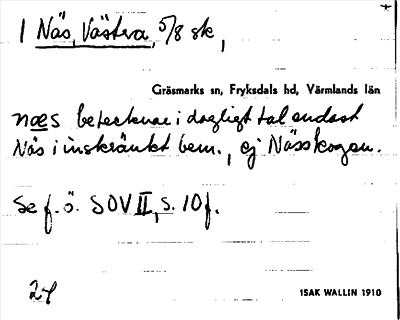 1 Näs, Västra, 5/8 sk,
Gräsmarks sn, Fryksdals hd, Värmlands län
næs betecknar i dagligt tal endast
Näs i inskränkt bem., ej Nässkogen.
Se f. ö. SOV II, s. 10 f.
24
ISAK WALLIN 1910